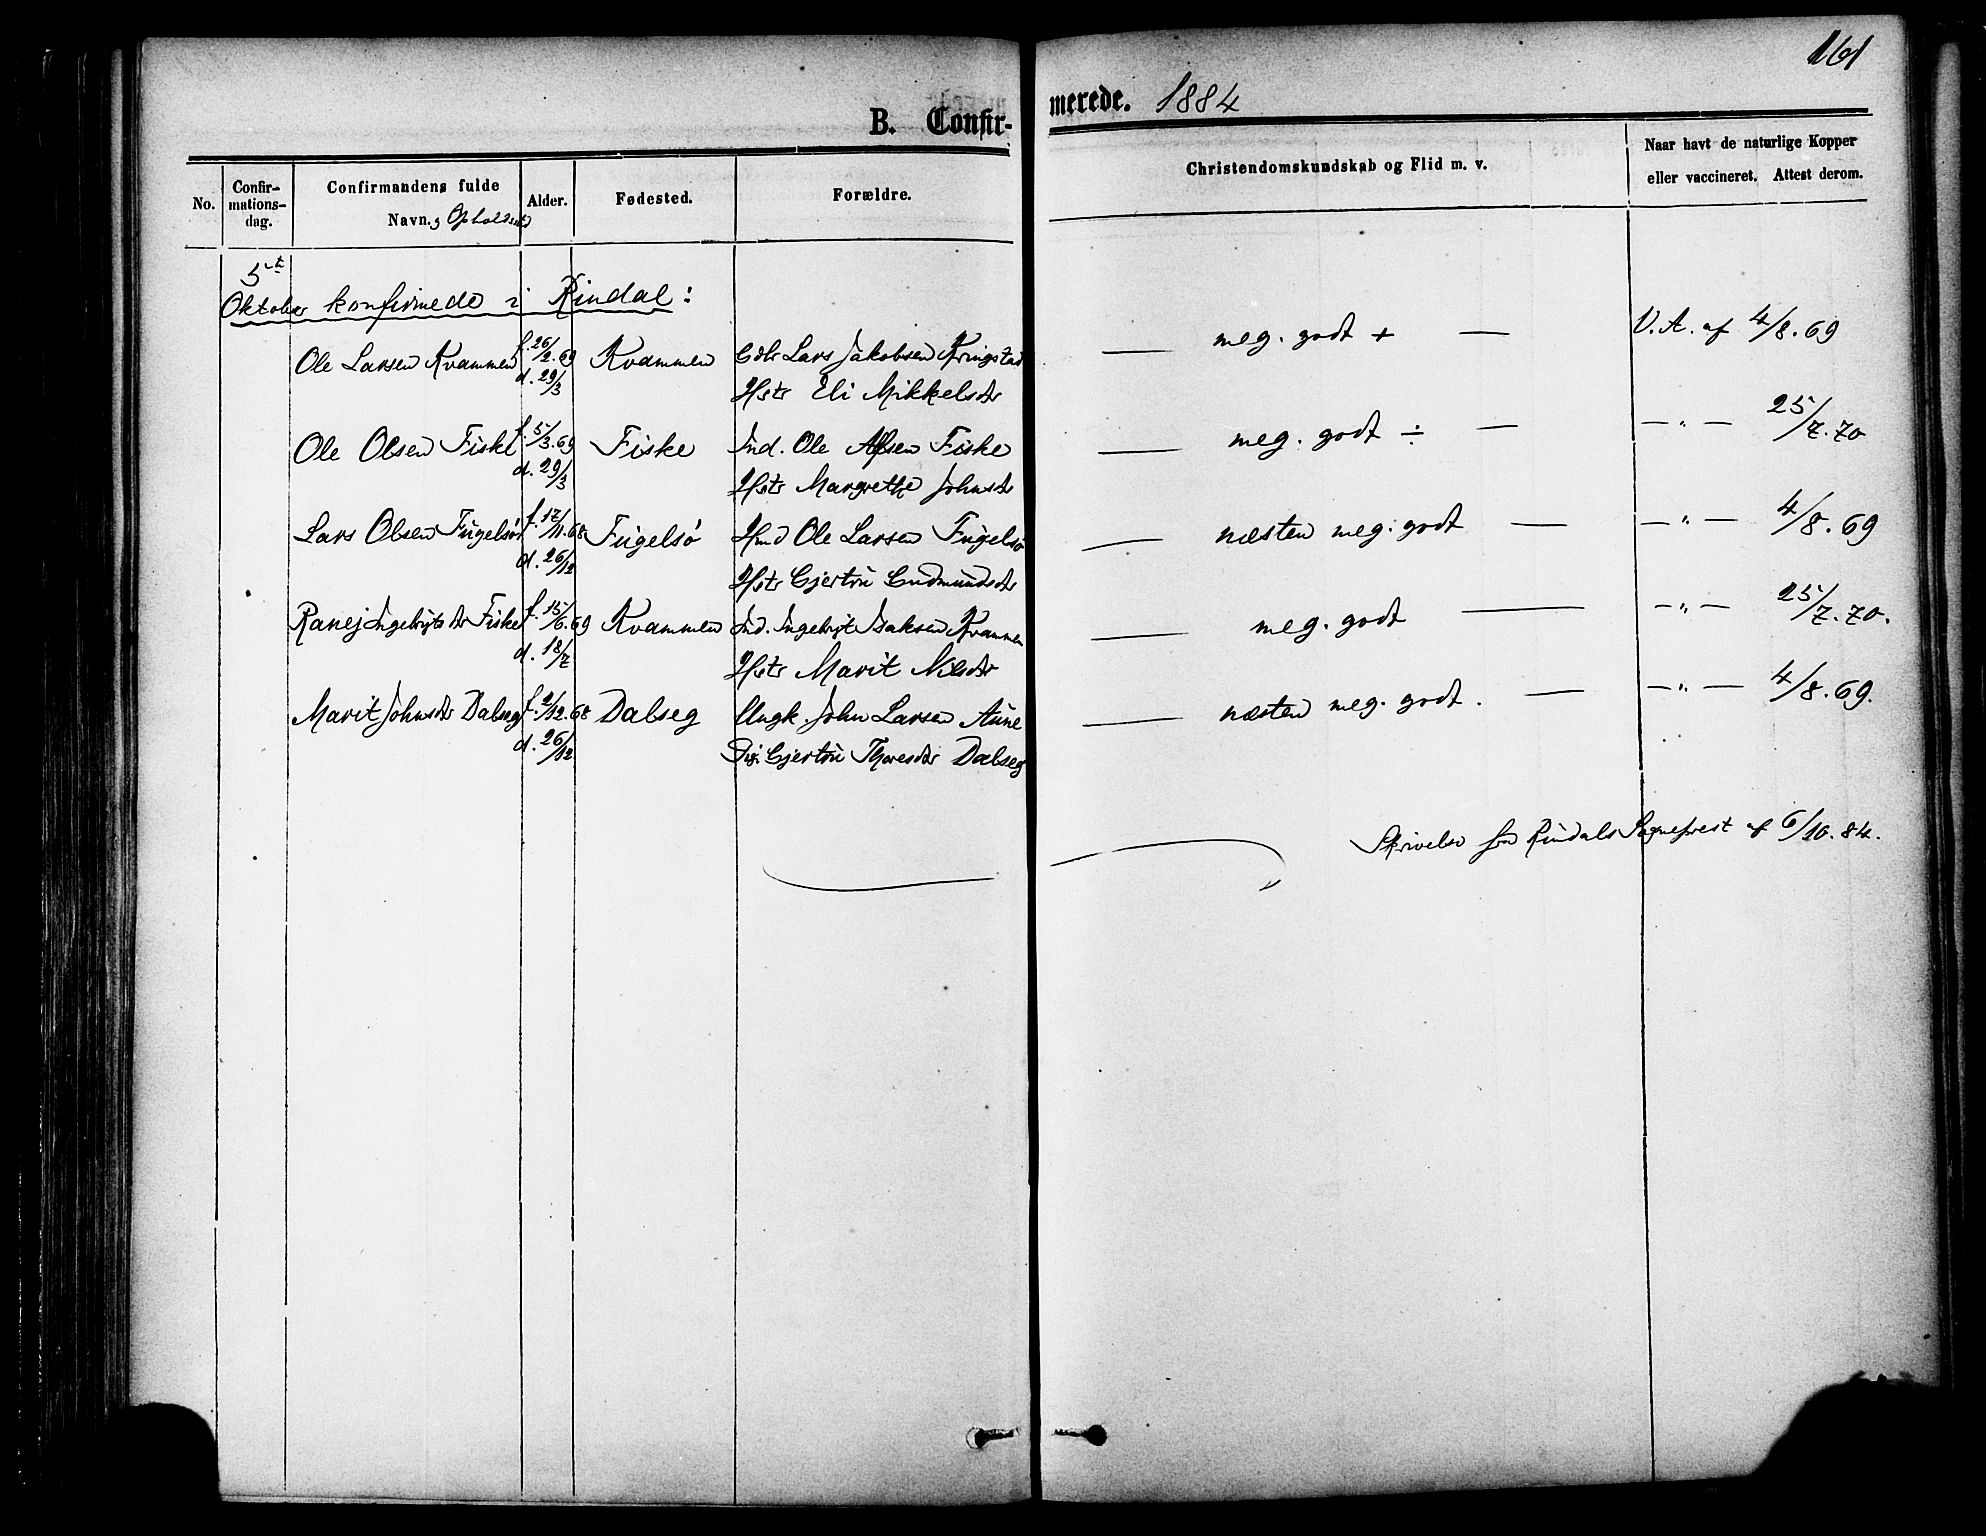 161
B. Confir- merede. 1884
No. Confir-mations-dag. Confirmandens fulde Navn, Opholdssted Alder. Fødested. Forældre. Christendomskundskab og Flid m. v. Naar havt de naturlige Kopper eller vaccineret. Attest derom.
5te
Oktober konfirmede i Rindal:
Ole Larsen Kvammen f. 26/2.69 Kvammen Gdbr Lars Jakobsen Kringstad — meg. godt + — V. A. af 4/8.69
d. 29/3 Hstr Eli Mikkelsdtr
Ole Olsen Fiske f. 5/3.69 Fiske Ind. Ole Alfsen Fiske — meg. godt ÷ — — " — 25/7.70
d. 29/3 Hstr Margrethe Johnsdtr
Lars Olsen Fugelsø f. 17/11.68 Fugelsø Hmd Ole Larsen Fugelsø — næsten meg. godt — — " — 4/8.69
d. 26/12 Hstr Gjertru Gudmundsdtr
Ranej Ingebrigtsdtr Fiske f. 15/6.69 Kvammen Ind. Ingebrigt Isaksen Kvammen — meg. godt — — " — 25/7.70.
d. 18/7 Hstr Marit Nilsdtr
Marit Johnsdtr Dalseg f. 2/12.68 Dalseg Ungk. John Larsen Aune — næsten meg. godt. — — " — 4/8.69.
d. 26/12 Pig. Gjertru Thoresdtr Dalseg
Skrivelse fra Rindals Sogneprest af 6/10.84.